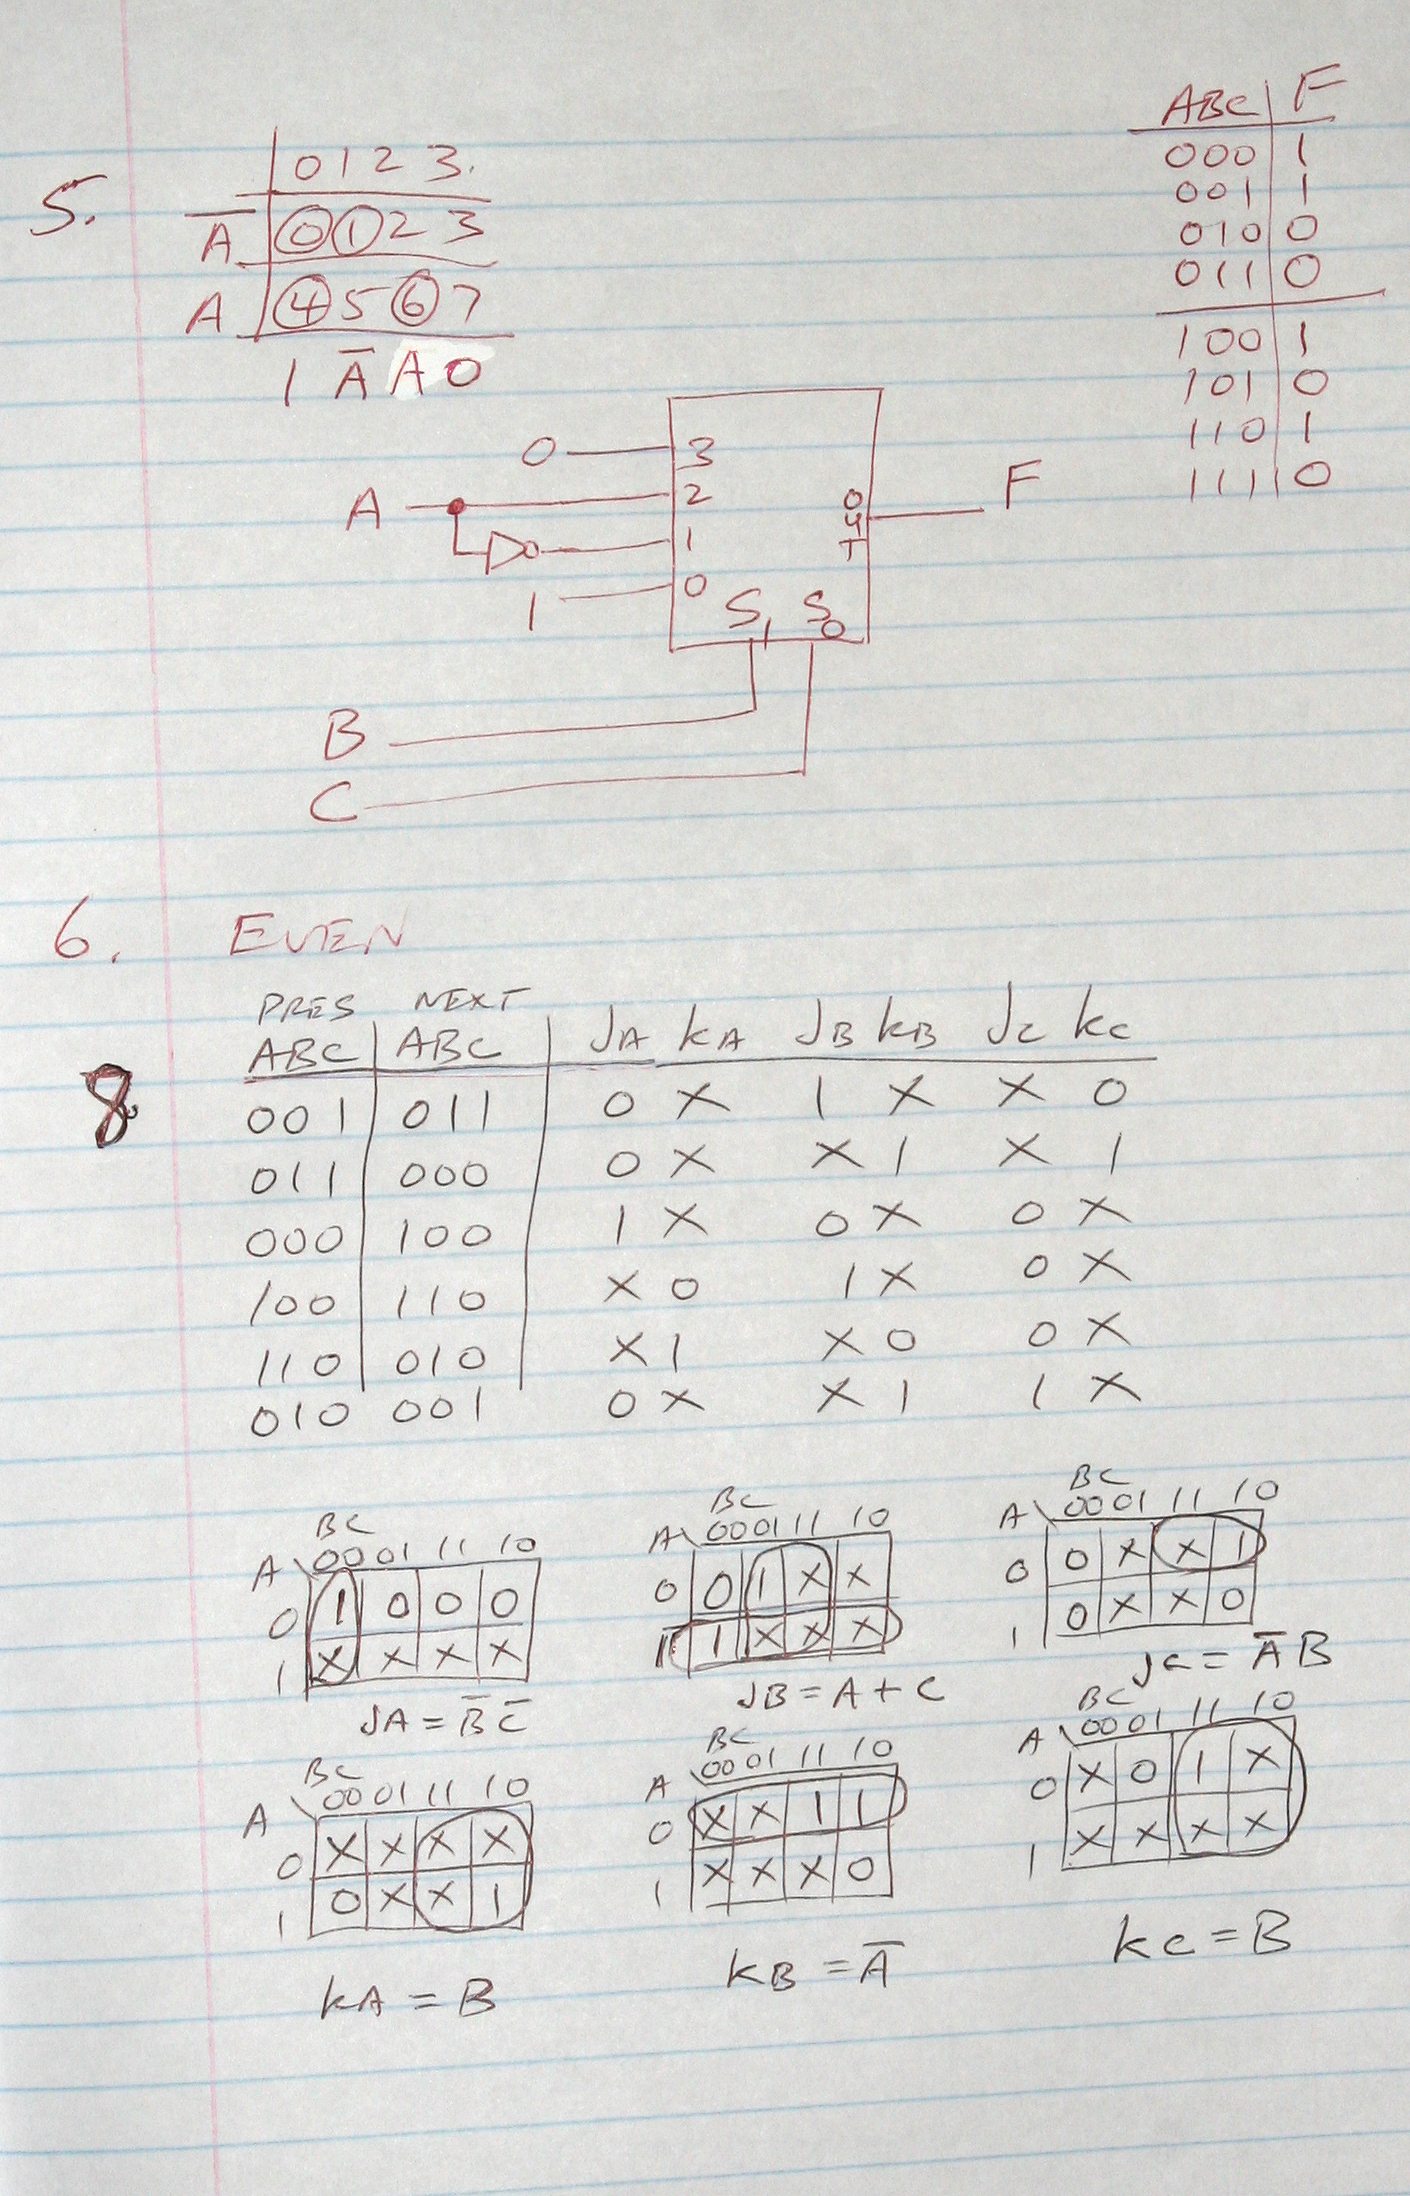 ABC F
000 1
001 1
010 0
011 0
100 1
101 0
110 1
111 0
5.
0 1 2 3.
A̅ 0 1 2 3
A 4 5 6 7
1 A̅ A 0
0 3
A 2
1
1 0
OUT F
S1 S0
B
C
6. EVEN
8
PRES NEXT
ABC ABC JA KA JB KB JC KC
001 011 0 X 1 X X 0
011 000 0 X X 1 X 1
000 100 1 X 0 X 0 X
100 110 X 0 1 X 0 X
110 010 X 1 X 0 0 X
010 001 0 X X 1 1 X
BC
A 00 01 11 10
0 1 0 0 0
1 X X X X
JA = B̅ C̅
BC
A 00 01 11 10
0 0 1 X X
1 1 X X X
JB = A + C
BC
A 00 01 11 10
0 0 X X 1
1 0 X X 0
JC = A̅ B
BC
A 00 01 11 10
0 X X X X
1 0 X X 1
KA = B
BC
A 00 01 11 10
0 X X 1 1
1 X X X 0
KB = A̅
BC
A 00 01 11 10
0 X 0 1 X
1 X X X X
KC = B